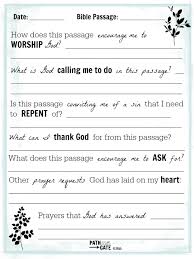 Date: Bible Passage:
How does this passage encourage me to
WORSHIP God?
What is God calling me to do in this passage?
Is this passage convicting me of a sin that I need
to REPENT of?
What can I thank God for from this passage?
What does this passage encourage me to ASK for?
Other prayer requests God has laid on my heart:
Prayers that God has answered
PATH
GATE